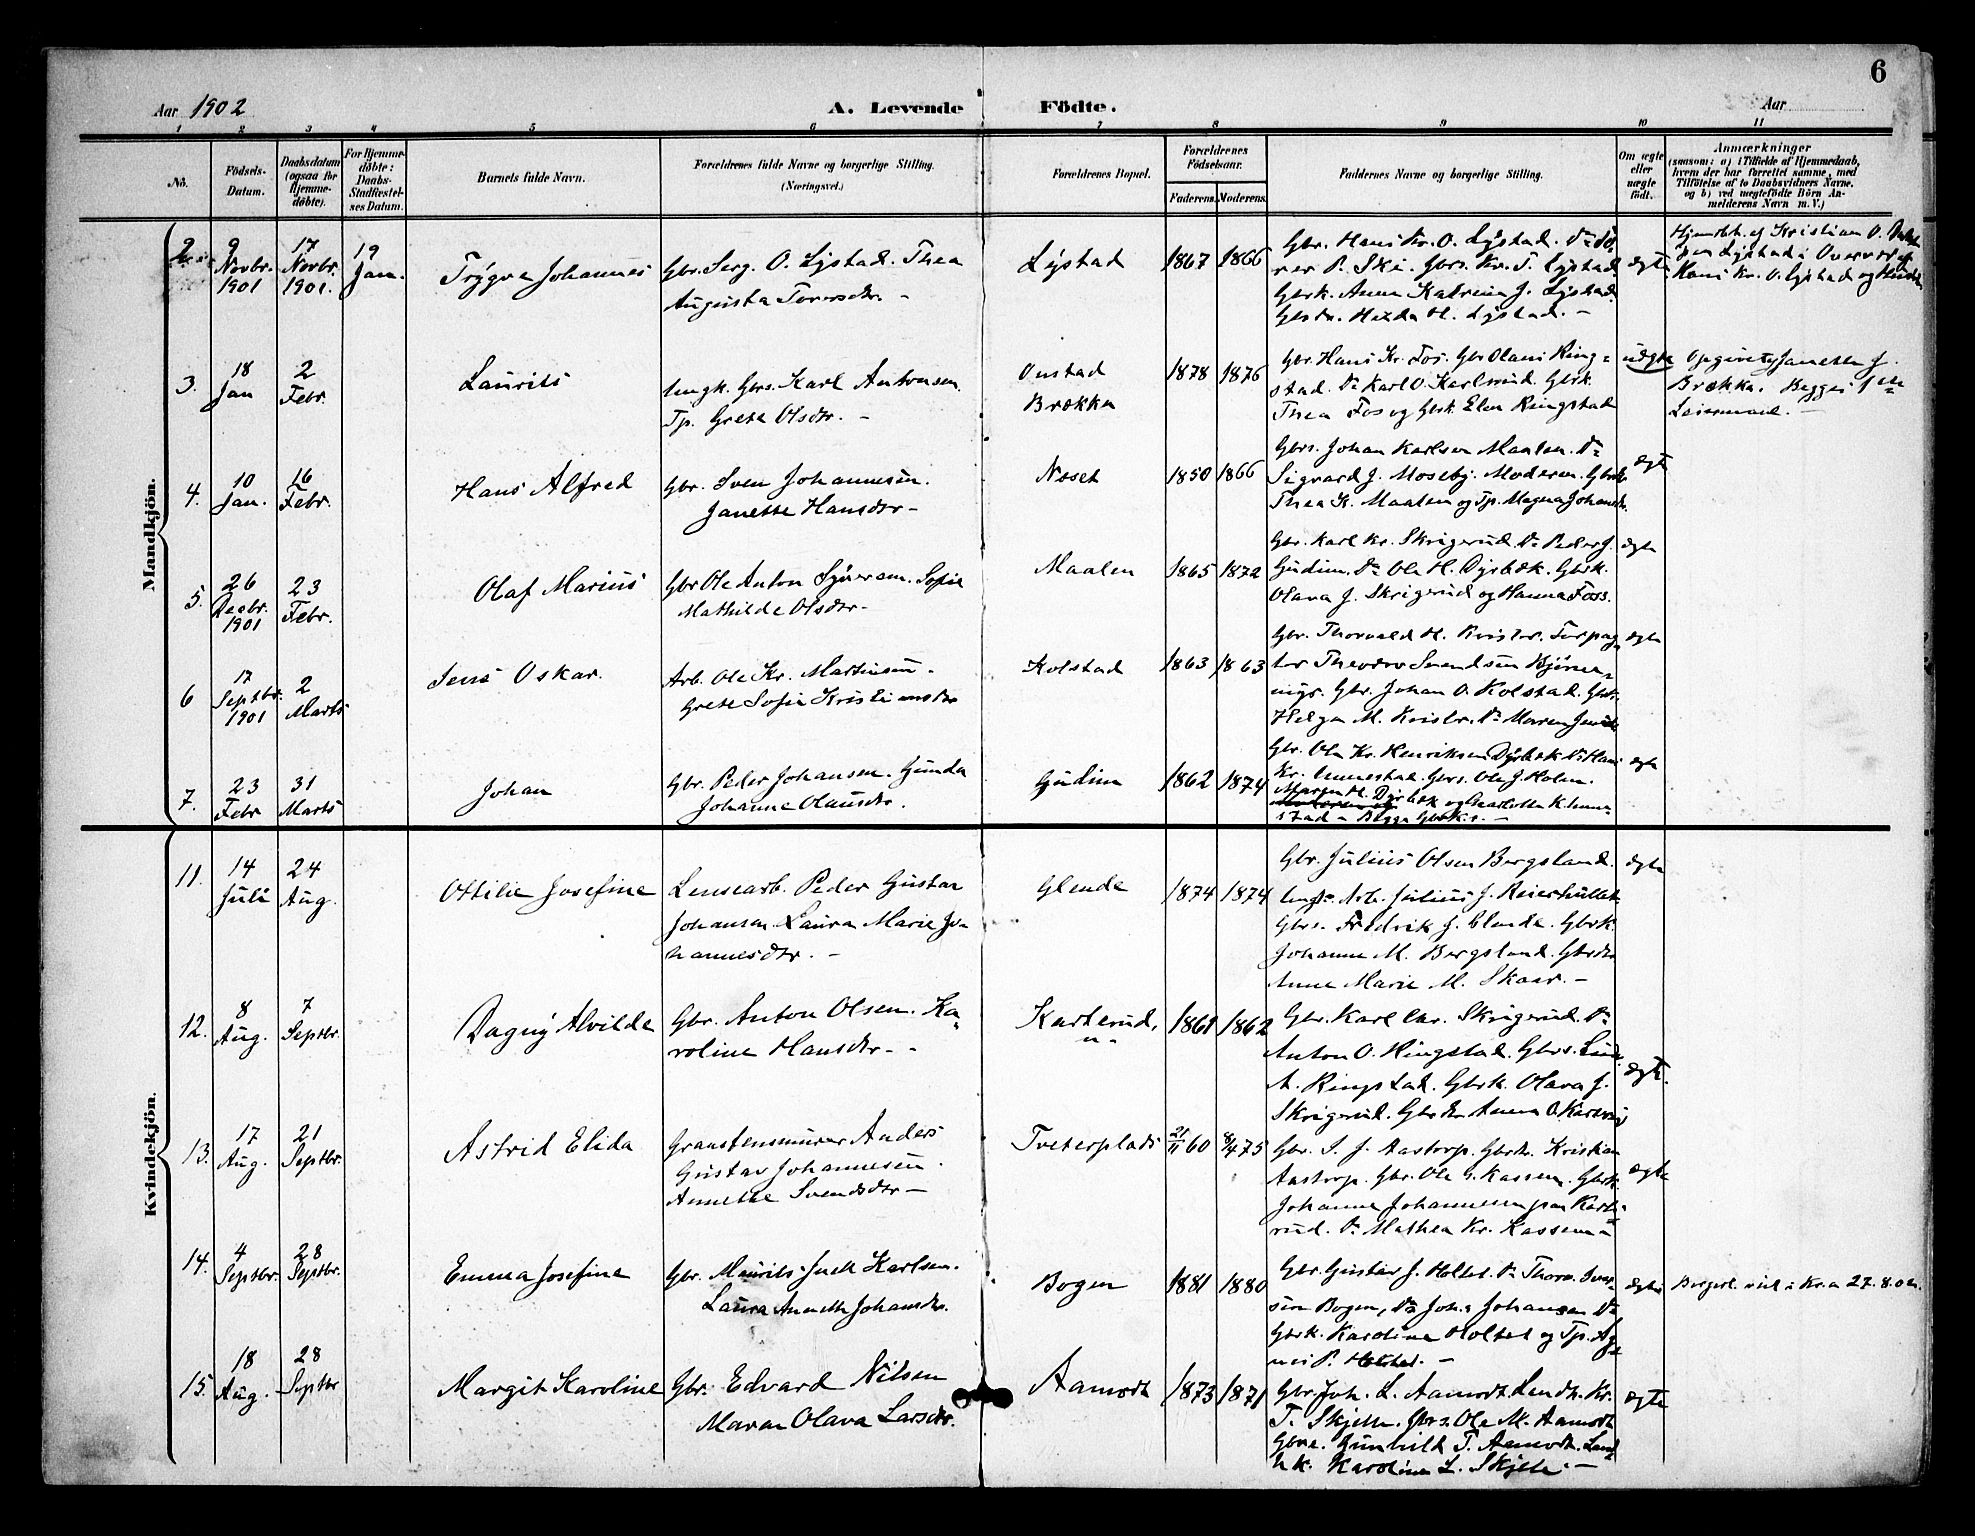 6
Aar 1902 A. Levende Födte. Aar
1 2 3 4 5 6 7 8 9 10 11
No. Födsels-Datum. Daabsdatum (ogsaa for Hjemme-döbte). For Hjemme-döbte: Daabs-Stadfæstel-ses Datum. Barnets fulde Navn. Forældrenes fulde Navne og borgerlige Stilling. (Næringsvei.) Forældrenes Bopæl. Forældrenes Födselsaar. Faderens. Moderens. Faddernes Navne og borgerlige Stilling. Om ægte eller uægte födt. Anmærkninger (saasom: a) i Tilfælde af Hjemmedaab, hvem der har forrettet samme, med Tilföielse af to Daabsvidners Navne, og b) ved uægtefödte Börn An-melderens Navn m. V.)
Mandkjön.
2 9 Novbr. 1901 17 Novbr. 1901. 19 Jan. Trygve Johannes Gbr. Serg. O. Lystad. Thea
Augusta Torersdtr. - Lystad 1867 1866
Gbr. Hans Kr. O. Lystad. Do To-
rer P. Ski. Gbrs. Kr. T. Lystad
Gbrk. Anna Katrina J. Lystad
Gbrdtr. Hilda H. Lystad. - ægte
Hjemdbt. af Kristian O.
Lystad i Overvær af
Hans Kr. O. Lystad og
3. 18 Jan 2 Febr. Laurits Ungk. Gbrs. Karl Antonsen
Tp. Grete Olsdtr. - Onstad
Brække 1878 1876
Gbr. Hans Kr. Fos. Gbr Olaus Ring-
stad. Do Karl O. Karlsrud. Gbrk.
Thea Fos og Gbrk Elen Ringstad uægte
Opgivet af Janette J.
Brække. Begges 1ste
Leiermaal. -
4. 10 Jan. 16 Febr. Hans Alfred Gbr. Sven Johannesen.
Janette Hansdtr - Næset 1850 1866
Gbrs. Johan Karlsen Maalen. Do
Sigvard J. Moseby. Moderen. Gbrk
Thea K. Maalen og Tp. Magna ægte
5. 26 Decbr. 1901 23 Febr. Olaf Marius Gbr Ole Anton Syversen. Sofie
Mathilde Olsdtr - Maalen 1865 1872
Gbr. Karl Kr. Skrigerud. Do Peder J.
Gudim. Do Ole H. Dyrbæk. Gbrk.
Olava J. Skrigerud og Hanna Foss. ægte
6 17 Septbr. 1901 2 Marts Jens Oskar. Arb. Ole Kr. Martinsen -
Grete Sofie Kristiansdtr Kolstad 1863 1863
Gbr. Thorvald H. Kvister. Forpag-
ter Theodor Svendsen
Gbr. Johan O. Kolstad. Gbrk.
Helga M. Kvister. Do Maren ægte
7. 23 Febr 31 Marts Johan Gbr. Peder Johansen. Gunda
Johanne Olausdtr. Gudim 1862 1874
Gbr. Ole Kr. Henriksen Dyrbæk Do Hans
Kr. Unnestad. Gbrs. Ole J. Holen.
Maren H. Dyrbæk og Charlotte K. Unne-
stad - Begge Gbrk.r. - ægte
Kvindekjön.
11. 14 Juli 24 Aug. Ottilie Josefine Lensearb. Peder Gustav
Johansen. Laura Marie Jo-
hannesdtr. - Glende 1874 1874
Gbr. Julius Olsen Bergsland.
Arb. Julius J. Reierhullet
Gbrs. Fredrik J. Glende. Gbrk.
Johanne M. Bergsland. Gbrdtr
Anne Marie M. Skaar. - ægte
12. 8 Aug. 7 Septbr. Dagny Alvilde Gbr. Anton Olsen. Ka-
roline Hansdtr. - Karterud. 1861 1862
Gbr. Karl Chr. Skrigerud. Do
Anton O. Ringstad. Gbrs.
A. Ringstad. Gbrk. Olava J.
Skrigerud. Gbrdtr Anna O. ægte.
13. 17 Aug. 21 Septbr. Astrid Elida Granstensmurer Anders
Gustav Johannesen.
Annette Svendsdtr - Tveterplads 21/11 60 8/4 75
Gbr. S. J. Aastorp. Gbrk. Kristian
Aastorp. Gbr. Ole G. Kassem. Gbrk.
Johanne Johannesen paa Karte-
rud. Do Mathea Kr. Kassem - ægte
14. 4 Septbr. 28 Septbr. Emma Josefine Gbr. Maurits Karlsen.
Laura Annette Johansdtr. Bogen 1881 1880
Gbr. Gustav J. Holtet. Do Thorv. Iver-
sen Bogen, Do Joh.s Johansen Do
Gbrk. Karoline Holtet og Tp. Ag-
nes P. Holtet. - ægte Borgerl. viet i Kr.a 27.8.02.
15. 18 Aug. 28 Septbr Margit Karoline Gbr. Edvard Nilsen
Maren Olava Larsdtr. Aamodt 1873 1871
Gbr. Joh. L. Aamodt. Landh. Kr.
T. Skjelle. Gbrs. Ole M. Aamodt
Gbre. Gunhild T. Aamodt. Land-
hk. Karoline L. Skjelle - ægte